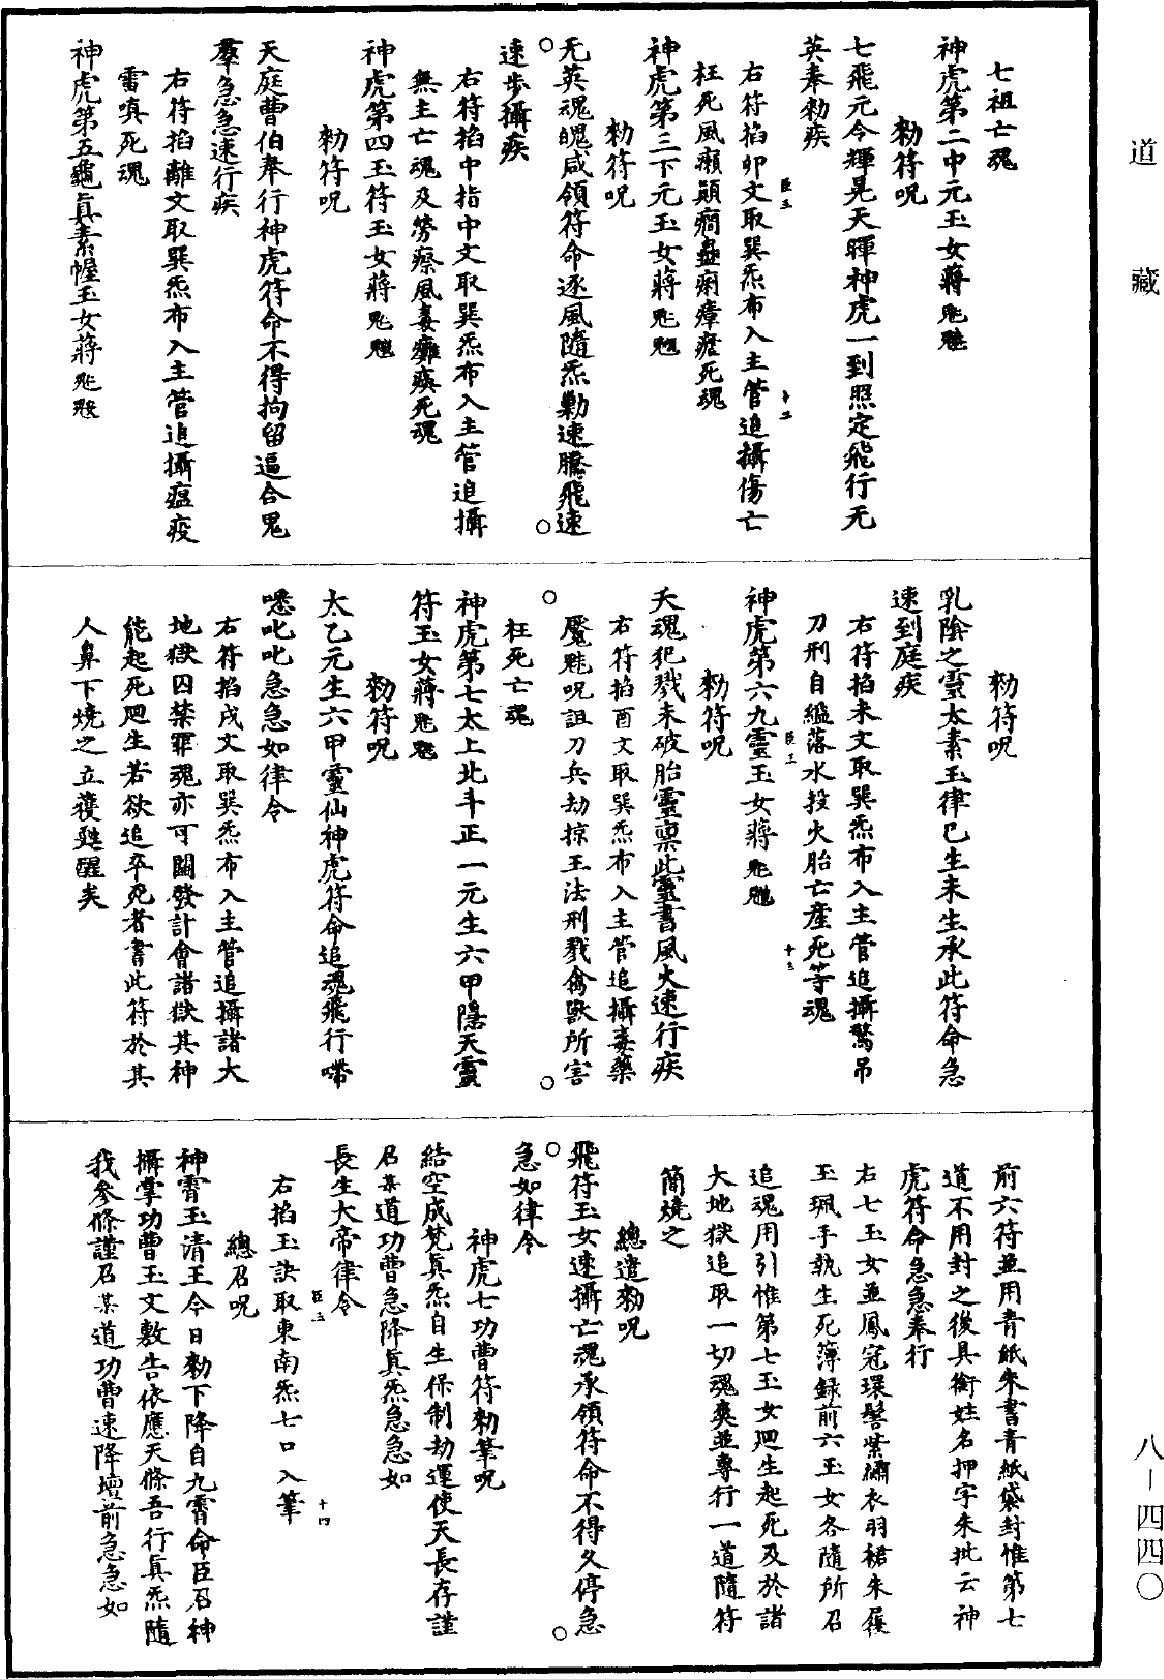 道藏
八—四四〇
七祖亡魂
神虎第二中元玉女蔣
勑符呪
七飛元今輝晃天暉神虎一到照定飛行无
英奉勑疾
右符掐卯文取巽炁布入主管追攝傷亡
枉死風癩顛癇蠱痢瘴瘧死魂
神虎第三下元玉女蔣
勑符呪
无英魂魄咸領符命逐風隨炁勦速騰飛速
速步攝疾
右符掐中指中文取巽炁布入主管追攝
無主亡魂及勞瘵風毒癰疾死魂
神虎第四玉符玉女蔣
勑符呪
天庭曹伯奉行神虎符命不得拘留逼合鬼
羣急急速行疾
右符掐離文取巽炁布入主管追攝瘟疫
雷嗔死魂
神虎第五龜眞素幄玉女蔣
勑符呪
乳陰之靈太素玉律已生未生承此符命急
速到庭疾
右符掐未文取巽炁布入主管追攝驚吊
刀刑自縊落水投火胎亡產死等魂
神虎第六九靈玉女蔣
勑符呪
夭魂犯戮未破胎靈稟此靈書風火速行疾
右符掐酉文取巽炁布入主管追攝毒藥
魘魅呪詛刀兵劫掠王法刑戮禽獸所害
枉死亡魂
神虎第七太上北斗正一元生六甲隱天靈
符玉女蔣
勑符呪
太乙元生六甲靈仙神虎符命追魂飛行㗣
㗭叱叱急急如律令
右符掐戌文取巽炁布入主管追攝諸大
地獄囚禁罪魂亦可關發計會諸獄其神
能起死廻生若欲追卒死者書此符於其
人鼻下燒之立獲甦醒矣
前六符並用青紙朱書青紙袋封惟第七
道不用封之後具銜姓名押字朱批云神
虎符命急急奉行
右七玉女並鳳冠環髻紫繡衣羽裙朱履
玉珮手執生死簿録前六玉女各隨所召
追魂用引惟第七玉女廻生起死及於諸
大地獄追取一切魂爽並專行一道隨符
簡燒之
總遣勑呪
飛符玉女速攝亡魂承領符命不得久停急
急如律令
神虎七功曹符勑筆呪
結空成梵眞炁自生保制劫運使天長存謹
召某道功曹急降眞炁急急如
長生大帝律令
右掐玉訣取東南炁七口入筆
總召呪
神霄玉清王今日勑下降自九霄命臣召神
攝掌功曹玉文敷告依應天條吾行眞炁隨
我參條謹召某道功曹速降壇前急急如